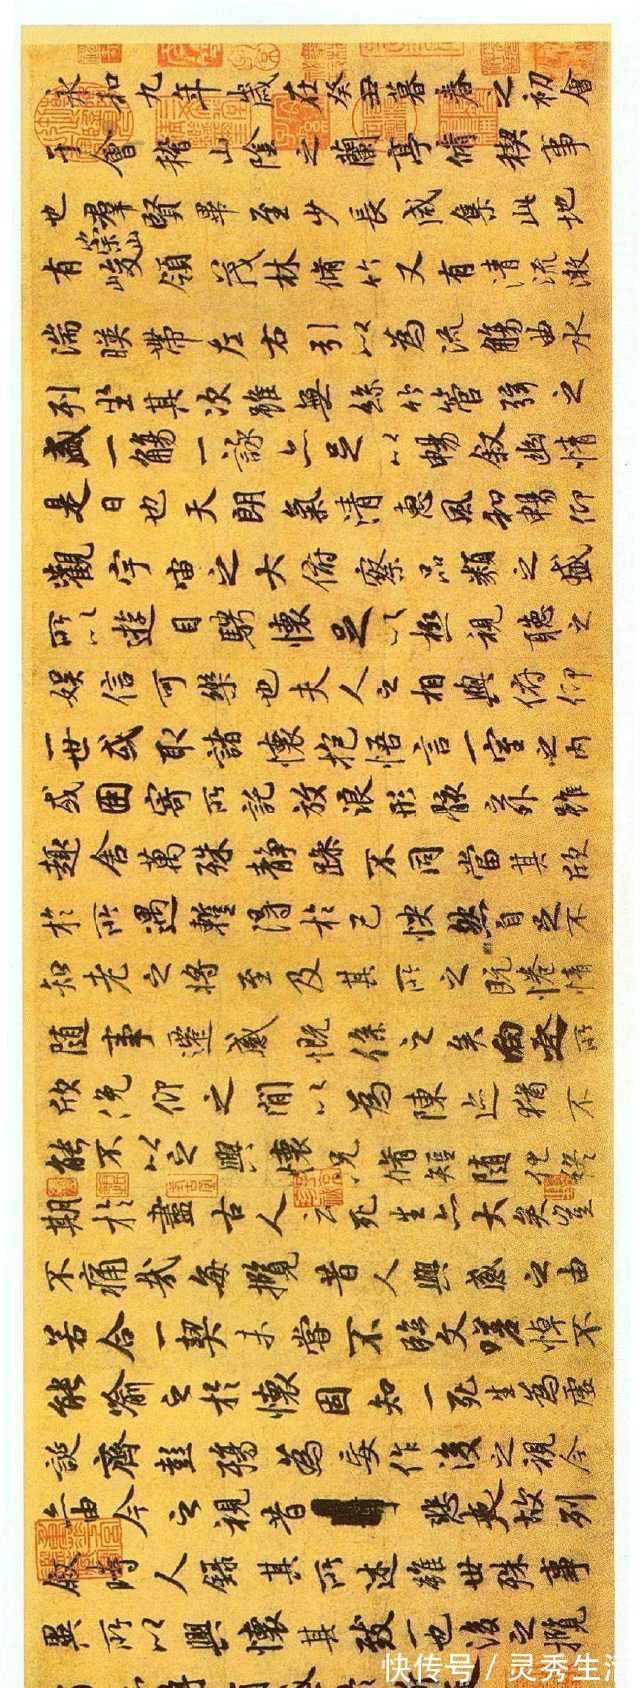 永和九年歲在癸丑暮春之初會
于會稽山陰之蘭亭脩稧事
也羣賢畢至少長咸集此地
有崇山峻領茂林脩竹又有清流激
湍暎帶左右引以為流觴曲水
列坐其次雖無絲竹管弦之
盛一觴一詠亦足以暢敘幽情
是日也天朗氣清惠風和暢仰
觀宇宙之大俯察品類之盛
所以遊目騁懷足以極視聽之
娛信可樂也夫人之相與俯仰
一世或取諸懷抱悟言一室之內
或因寄所託放浪形骸之外雖
趣舍萬殊靜躁不同當其欣
於所遇暫得於己怏然自足不
知老之將至及其所之既惓情
隨事遷感慨係之矣向之所
欣俛仰之間以為陳迹猶不
能不以之興懷況脩短隨化終
期於盡古人云死生亦大矣豈
不痛哉每攬昔人興感之由
若合一契未嘗不臨文嗟悼不
能喻之於懷固知一死生為虛
誕齊彭殤為妄作後之視今
亦由今之視昔悲夫故列
敘時人錄其所述雖世殊事
異所以興懷其致一也後之攬
快传号／灵秀生活